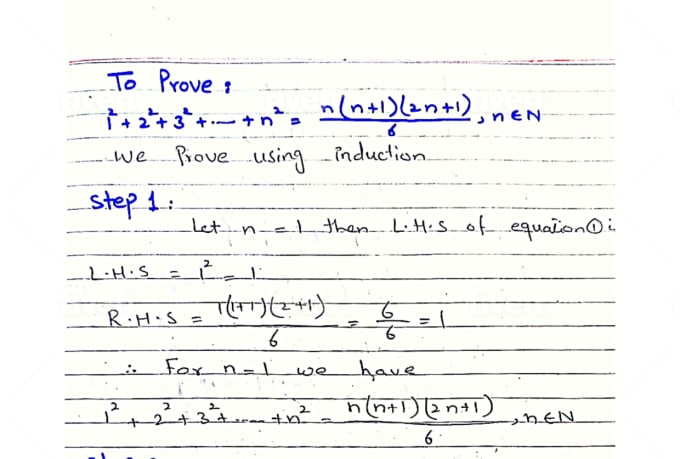 To Prove:
1² + 2² + 3² + .... + n² = n(n+1)(2n+1)/6, n∈N
we Prove using induction
Step 1:
Let n = 1 then L.H.S of equation①
L.H.S = 1² = 1
R.H.S = 1(1+1)(2+1)/6 = 6/6 = 1
∴ For n=1 we have
1² + 2² + 3² + ..... + n² = n(n+1)(2n+1)/6, n∈N